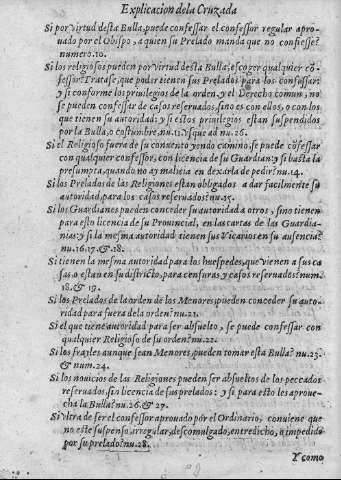 Explicacion dela Cruzada
Si por virtud desta Bulla, puede confessar el confessor regular apro-
uado por el Obispo, a quien su Prelado manda que no confiesse?
numero. 10.
Si los religiosos pueden por virtud desta Bulla, escoger qualquier cõ-
fessor? Tratase, que poder tienen sus Prelados para los confessar:
y si conforme los priuilegios de la orden, y el Derecho comun, no
se pueden confessar de casos reseruados, sino es con ellos, o con los
que tienen su autoridad: y si estos priuilegios estan suspendidos
por la Bulla, o costumbre, nu. 11. vsque ad nu. 26.
Si el Religioso fuera de su conuento yendo camino, se puede cõfessar
con qualquier confessor, con licencia de su Guardian: y si basta la
presumpta, quando no ay malicia en dexarla de pedir? nu. 14.
Si los Prelados de las Religiones estan obligados a dar facilmente su
autoridad, para los casos reseruados? nu. 15.
Si los Guardianes pueden conceder su autoridad a otros, sino tienen
para esto licencia de su Prouincial, en las cartas de las Guardia-
nias: y si la mesma autoridad tienen sus Vicarios en su ausencia?
nu. 16. 17. & 18.
Si tienen la mesma autoridad para los huespedes, que vienen a sus ca
sas, o estan en su districto, para censuras y casos reseruados? num.
18. & 19.
Si los Prelados de la orden de los Menores, pueden conceder su auto-
ridad para fuera dela orden? nu. 21.
Si el que tiene autoridad para ser absuelto, se puede confessar con
qualquier Religioso de su orden? nu. 22.
Si los frayles aunque sean Menores, pueden tomar esta Bulla? nu. 23.
& num. 24.
Si los nouicios de las Religiones pueden ser absueltos de los peccados
reseruados, sin licencia de sus prelados: y si para esto les aproue-
cha la Bulla? nu. 26. & 27.
Si vltra de ser el confessor aprouado por el Ordinario, conuiene que
no este suspenso, irregular, descomulgado, entredicho, o impedido
por su prelado? nu. 28.
Y como